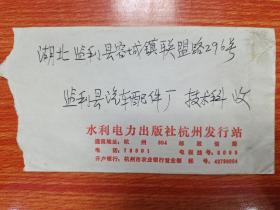 湖北监利县容城镇联盟路296号
监利县汽车配件厂 技术科 收
水利电力出版社杭州发行站
通讯地址：杭州 804 邮政信箱
电话：78801 电报挂号：8098
开户银行：杭州市农业银行营业部 帐号：48790004